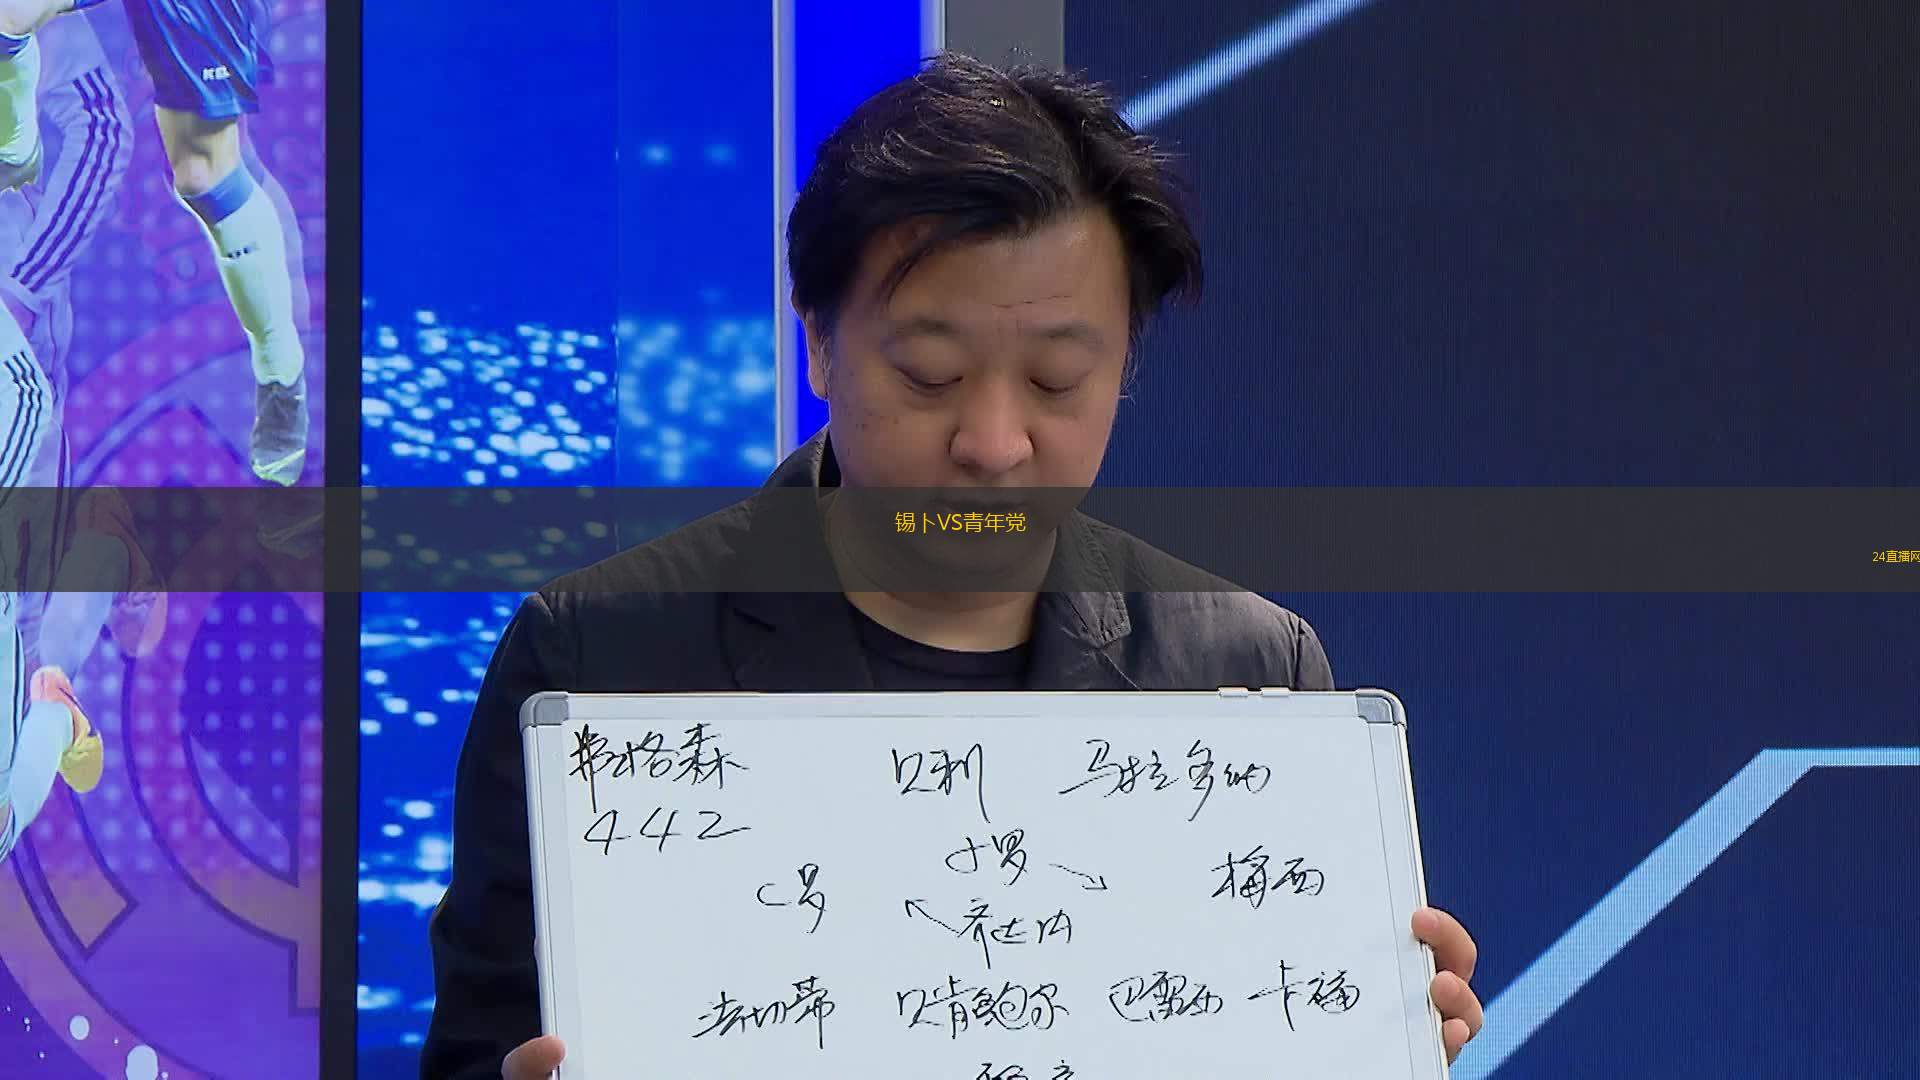 锡卜VS青年党
24直播网
弗格森 贝利 马拉多纳
442
小罗
C罗 梅西
齐达内
法切蒂 贝肯鲍尔 巴雷西 卡福